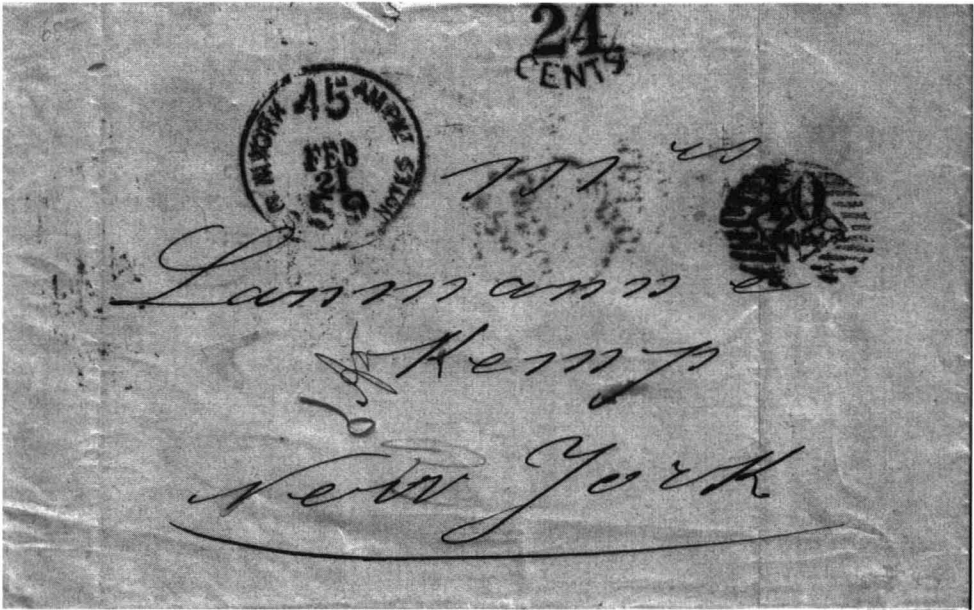 24
CENTS
45
FEB
21
10
Mrs
Lanmann e
Kemp
New York